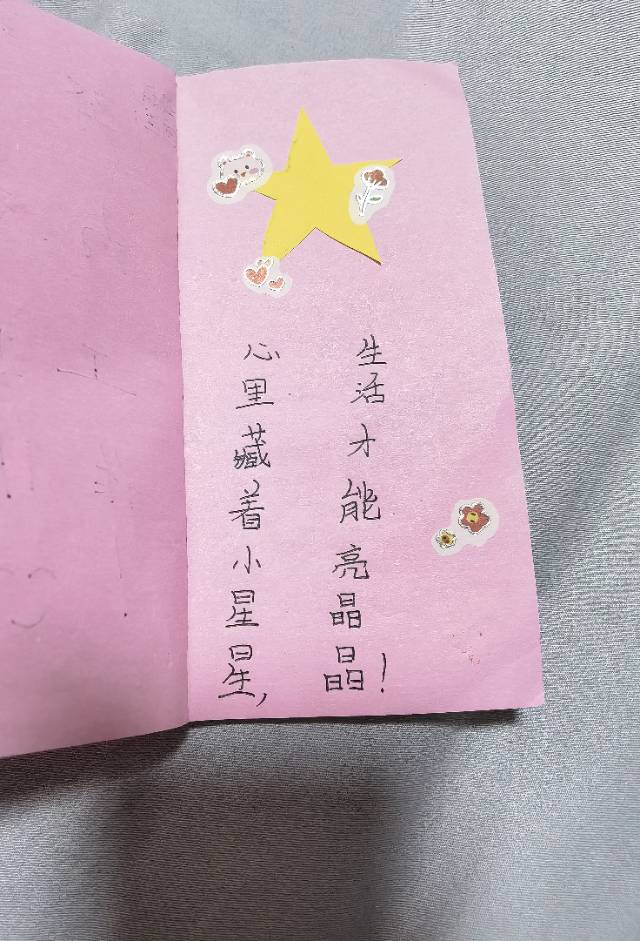 心里藏着小星星，
生活才能亮晶晶！